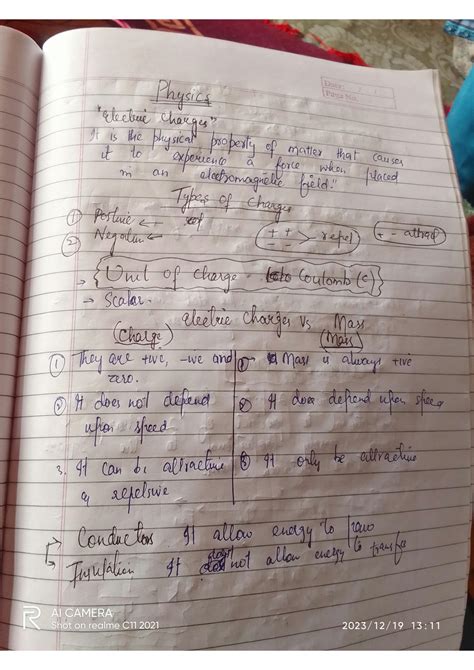 Date: / /
Page No.
Physics
"Electric Charges"
It is the physical property of matter that causes
it to experience a force when placed
in an electromagnetic field."
Types of Charges
① Positive ←
② Negative ←
+ + - - > repel
+ - attract
→ { Unit of charge - Coulomb (C) }
→ Scalar.
Electric Charges Vs Mass
(Charge) (Mass)
① They are +ive, -ive and zero.
① Mass is always +ive
② It does not depend upon speed
② It does depend upon speed
3. It can be attractive or repelsive
③ It only be attractive
Conductors It allow energy to
Insulation It not allow energy to transfer
R AI CAMERA
Shot on realme C11 2021
2023/12/19 13:11